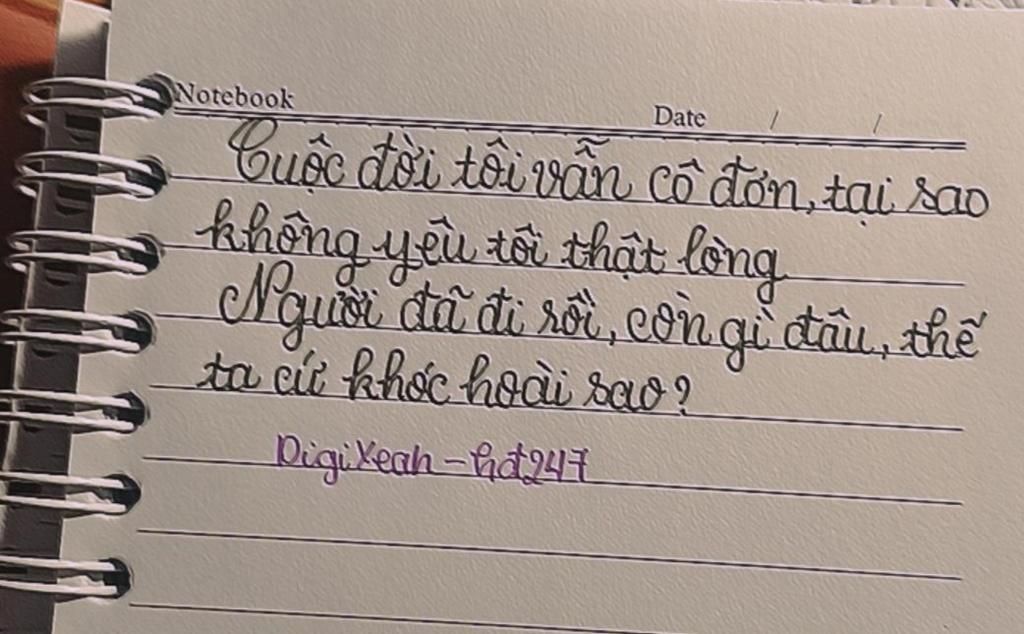 Notebook
Date / /
Cuộc đời tôi vẫn cô đơn, tại sao
không yêu tôi thật lòng
Người đã đi rồi, còn gì đâu, thế
ta cứ khóc hoài sao?
DigiYeah - hd247